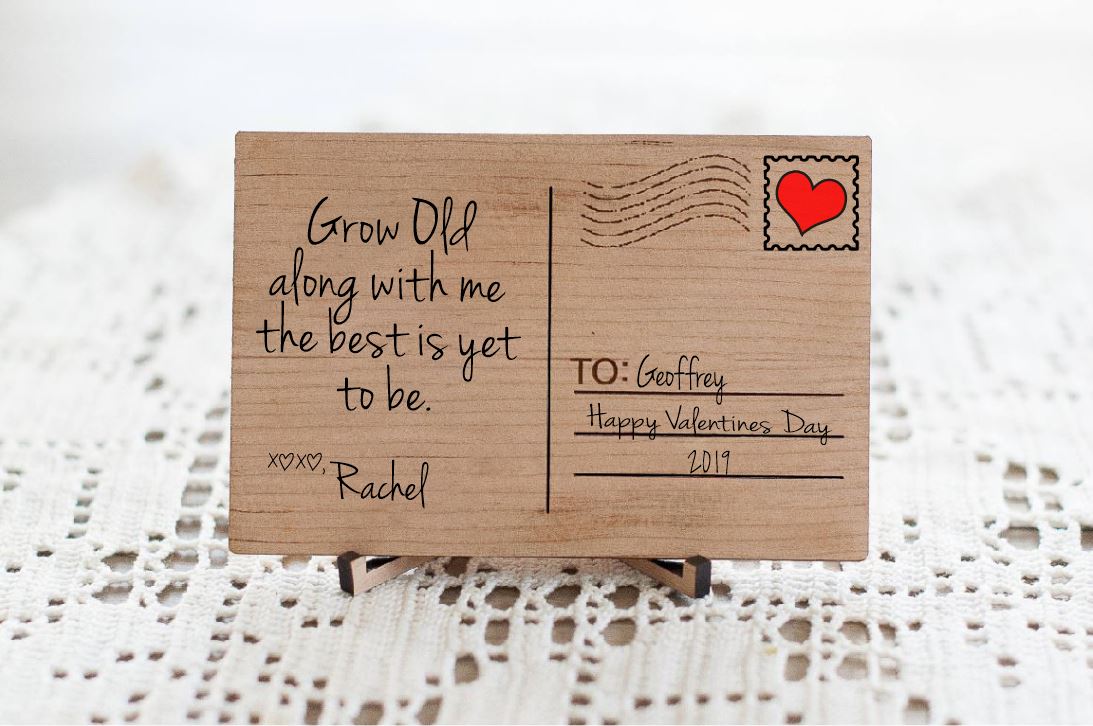 Grow Old
along with me
the best is yet
to be.
x♡x♡, Rachel
TO: Geoffrey
Happy Valentines Day
2019